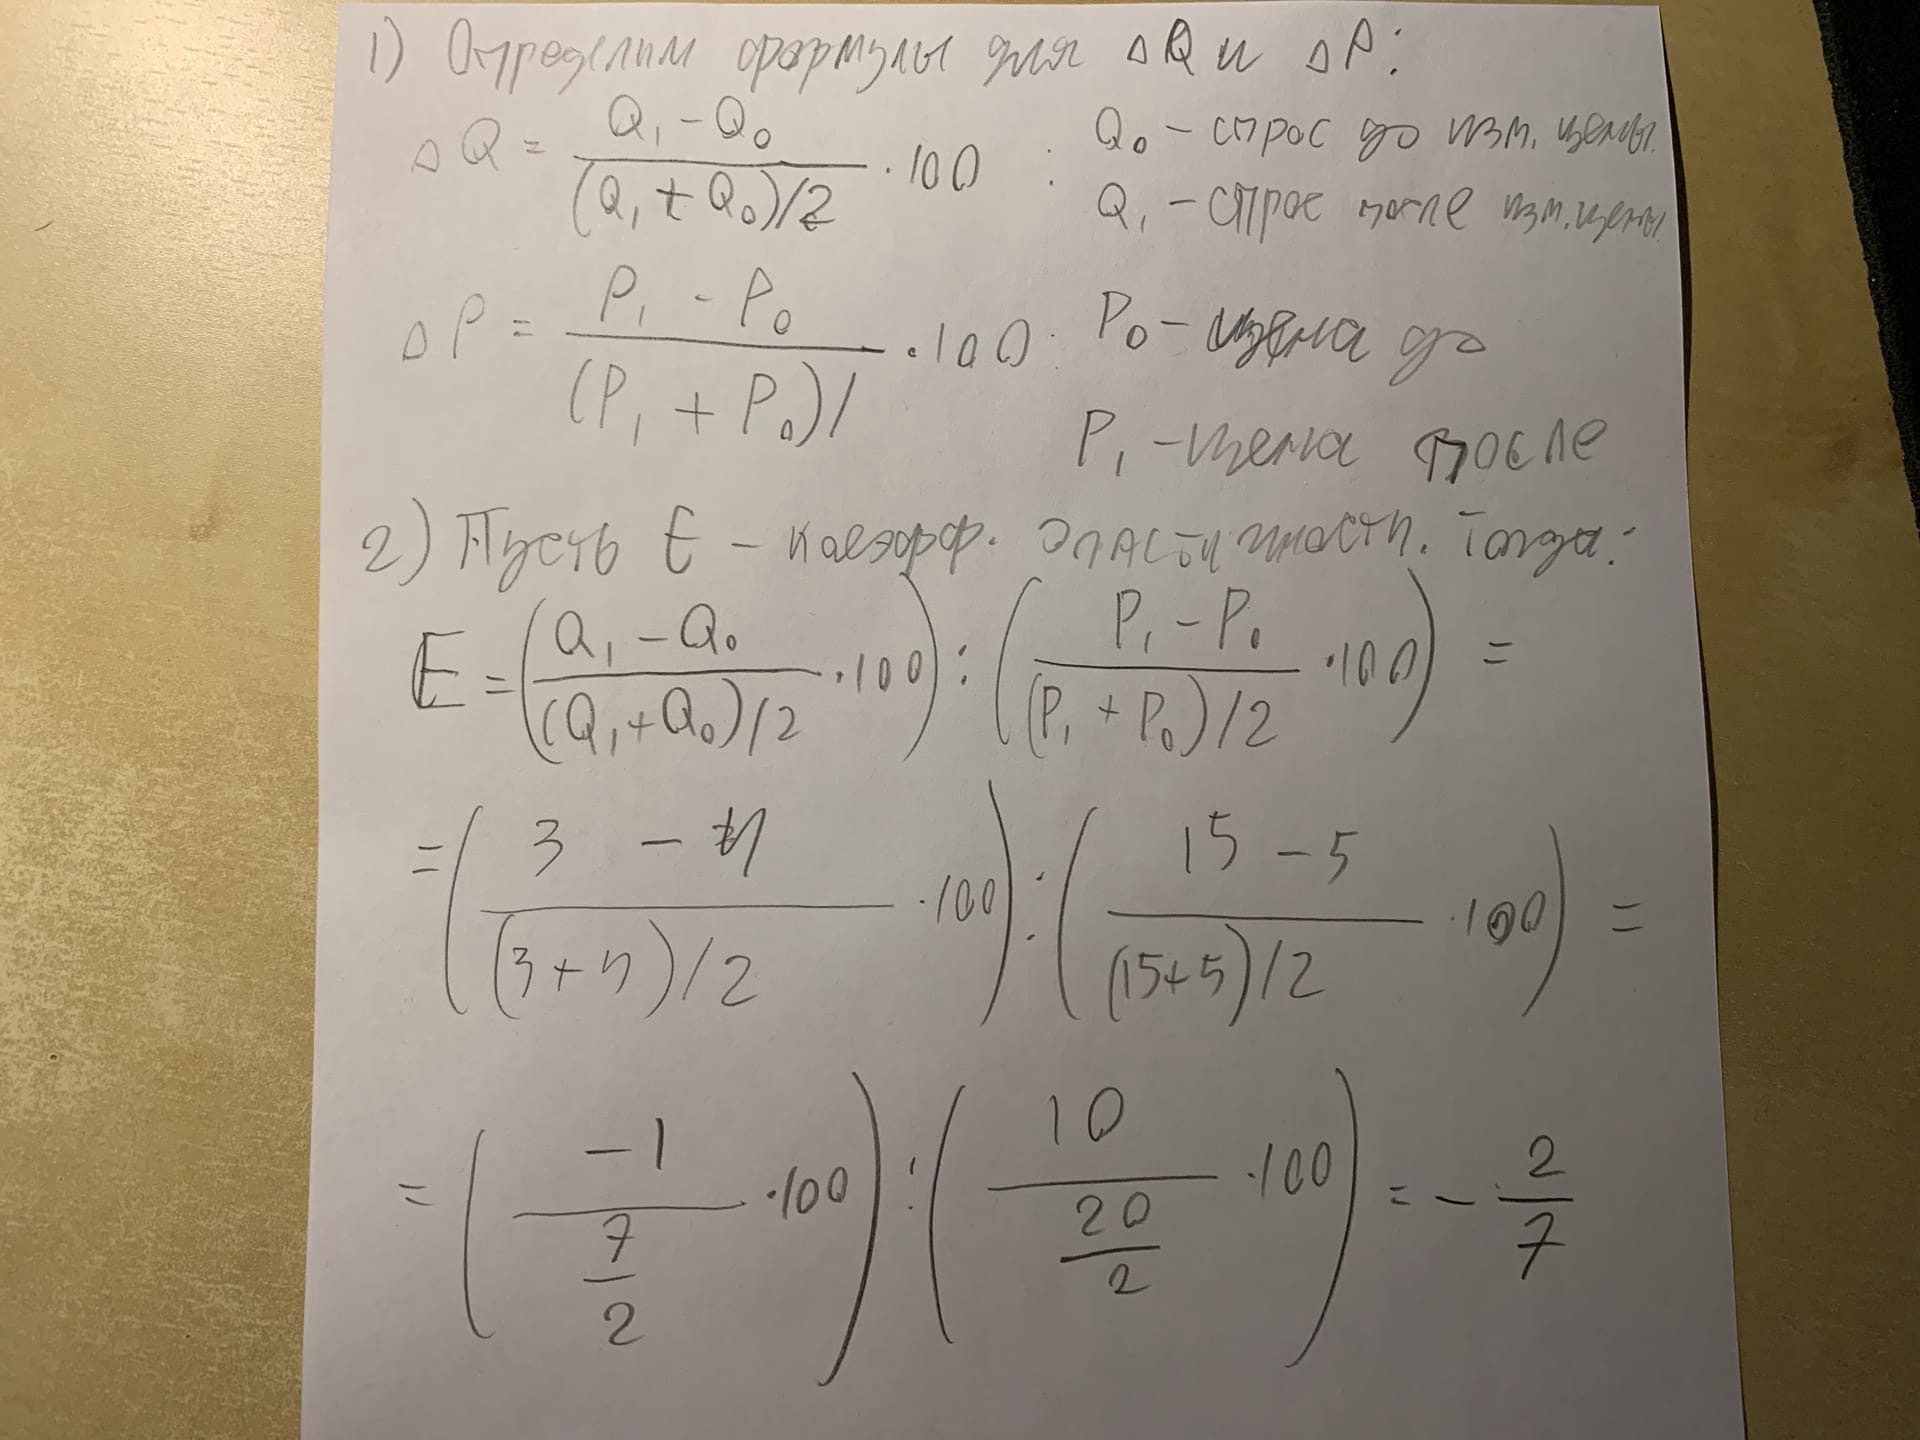 1) Определим формулы для ΔQ и ΔP:
ΔQ = (Q₁ - Q₀) / ((Q₁ + Q₀)/2) · 100 : Q₀ - спрос до изм. цены.
Q₁ - спрос после изм. цены.
ΔP = (P₁ - P₀) / ((P₁ + P₀)/) · 100 : P₀ - цена до
P₁ - цена после
2) Пусть E - коеэфф. эластичности. Тогда:
E = ((Q₁ - Q₀) / ((Q₁ + Q₀)/2) · 100) : ((P₁ - P₀) / ((P₁ + P₀)/2) · 100) =
= ((3 - 4) / ((3 + 4)/2) · 100) : ((15 - 5) / ((15 + 5)/2) · 100) =
= (-1 / (7/2) · 100) : (10 / (20/2) · 100) = - 2/7